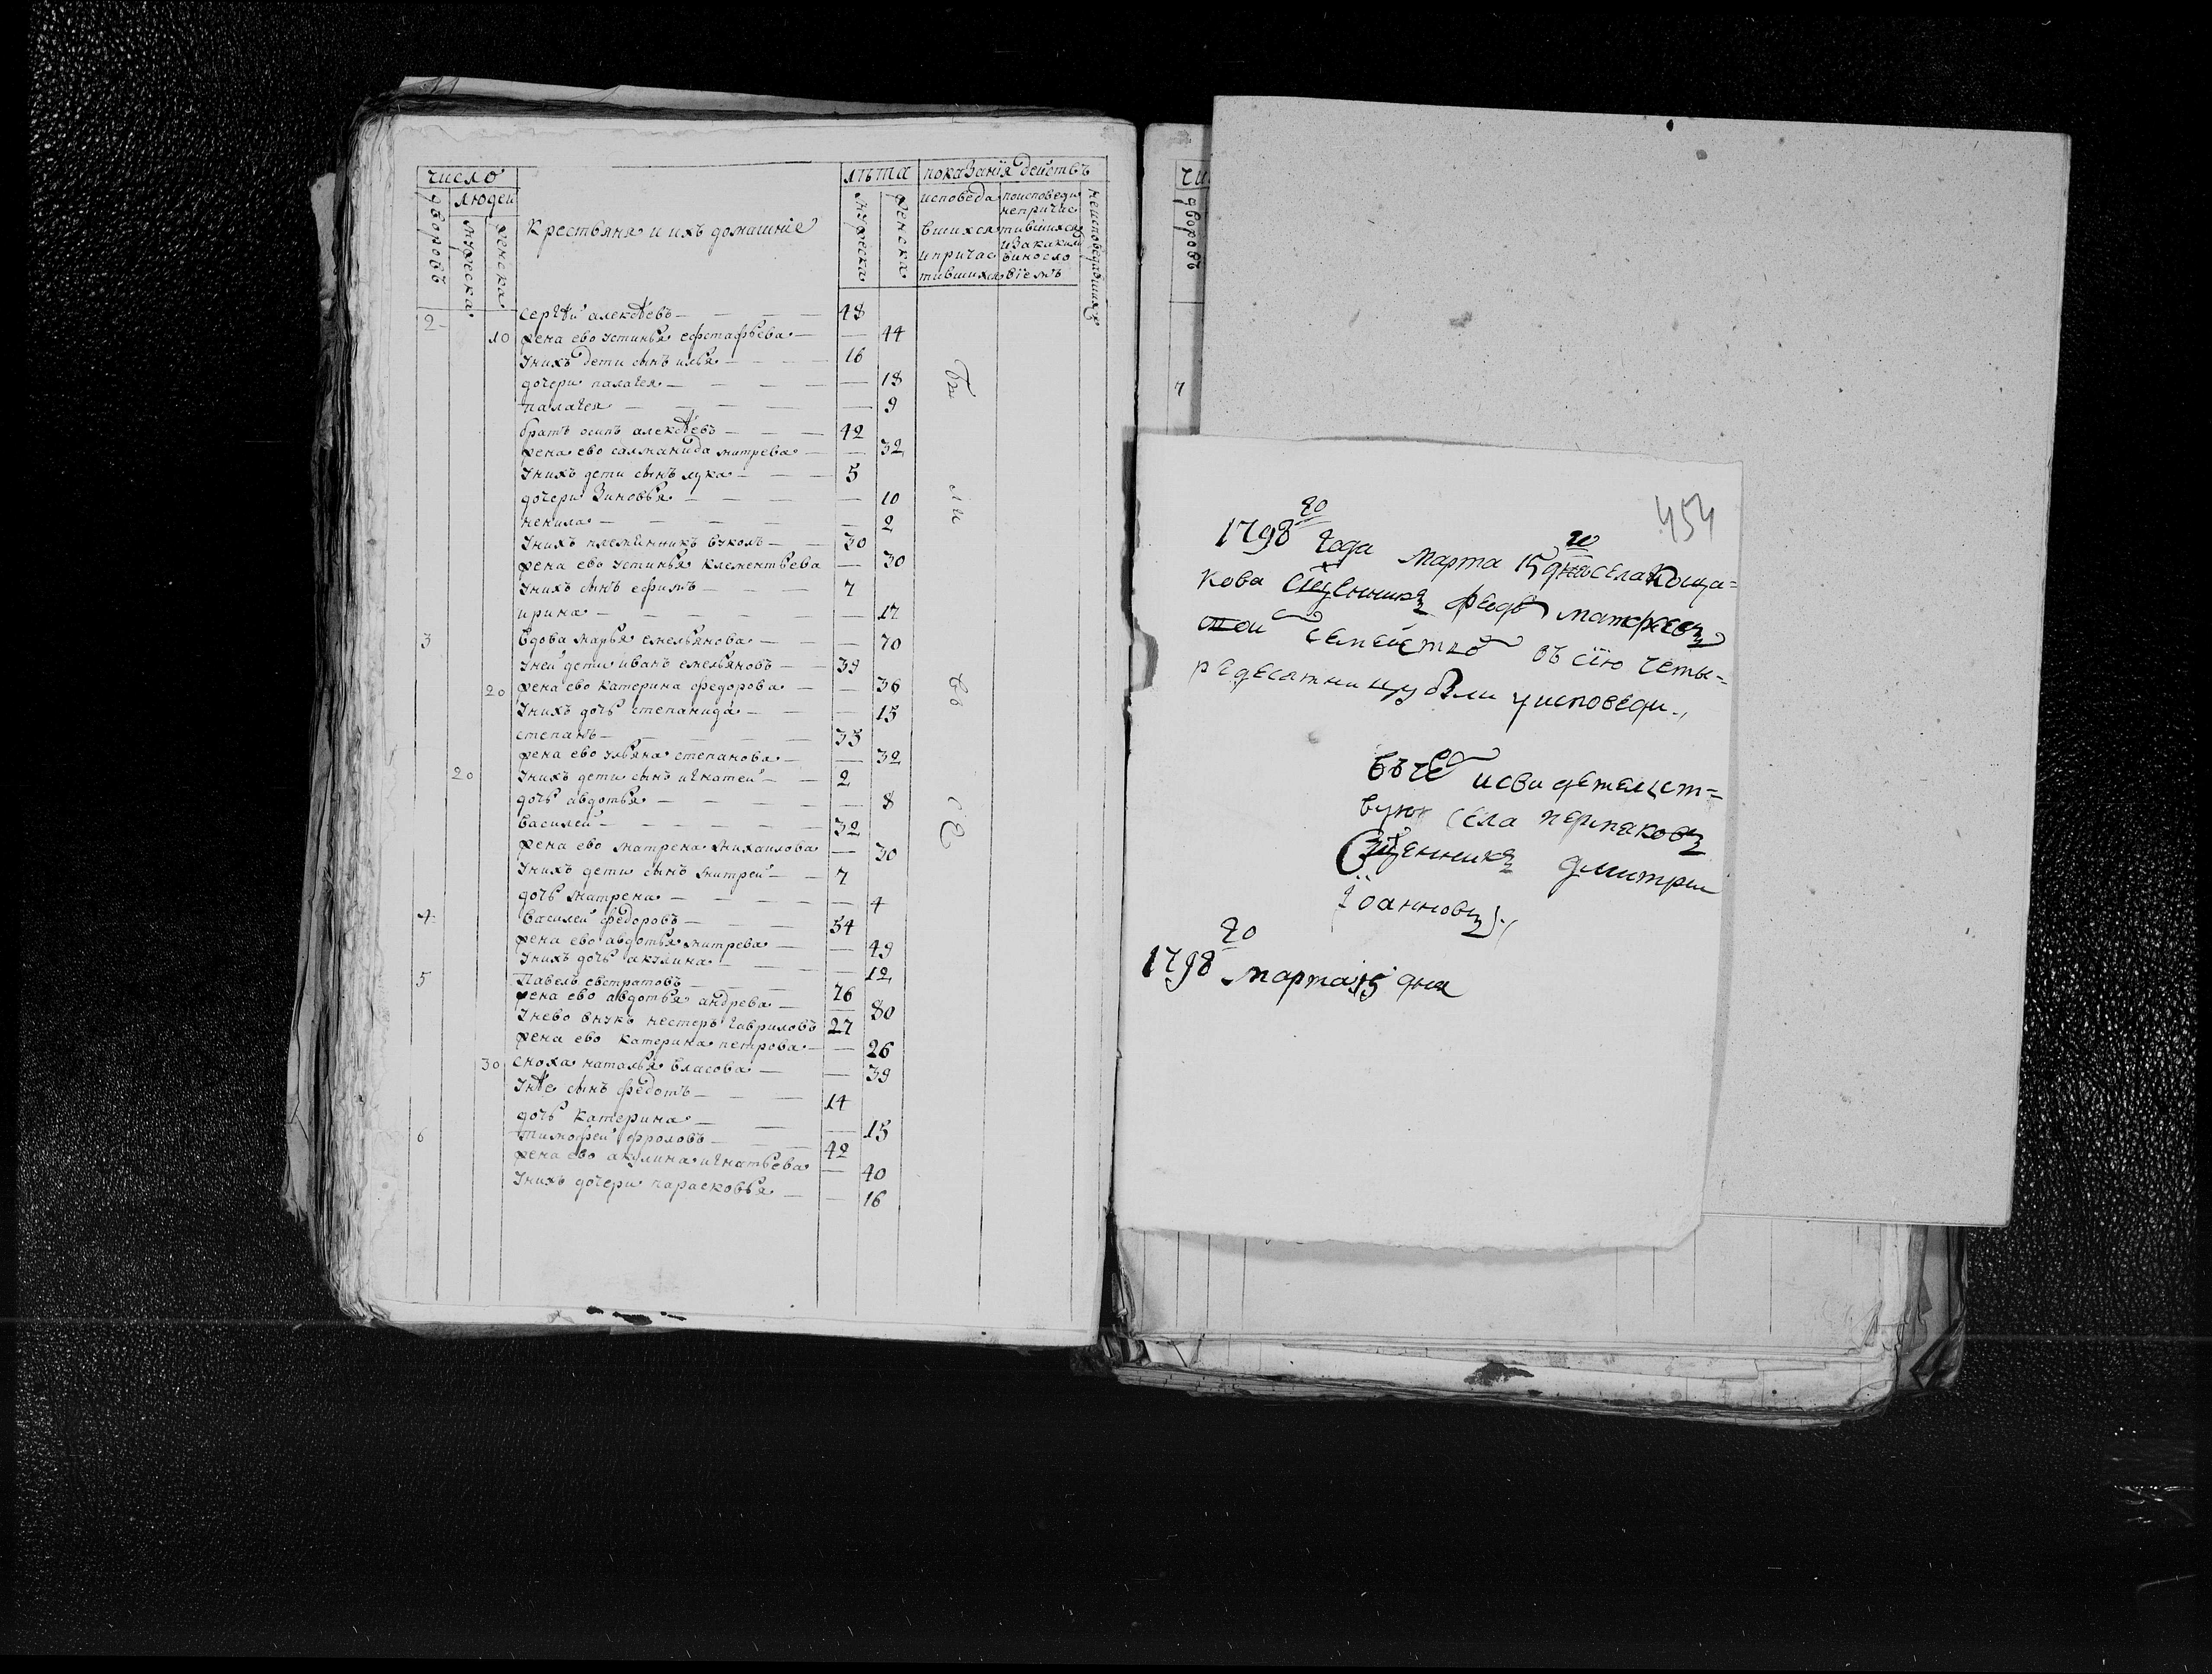 число
людей
дворовъ
мужеска
женска
Крестьяня и ихъ домашнїе
лѣта
мужеска
женска
показанїя действъ
исповеда
вшихся
и причас
тившихся
по исповеди
не причас
тившихся
и за каким
виносло
вїемъ
не исповедавшихся
2 сергѣй алексѣевъ 48
10 жена ево устинья еѳстафьева 44
у нихъ дети сынъ илья 16
дочери палагея 18
палагея 9
братъ осипъ алексѣевъ 42
жена ево саламанида митрева 32
у нихъ дети сынъ лука 5
дочери зиновья 10
ненила 2
у нихъ племянникъ вуколъ 30
жена ево устинья клементьева 30
у нихъ сынъ ефимъ 7
ирина 17
3 вдова марья емельянова 70
у ней дети иванъ емельяновъ 39
20 жена ево катерина федорова 36
у нихъ дочь степанида 15
степанъ 35
жена ево ульяна степанова 32
20 у нихъ дети сынъ игнатей 2
дочь авдотья 8
василей 32
жена ево матрена михаилова 30
у нихъ дети сынъ митрей 7
дочь матрена 4
4 василей федоровъ 54
жена ево авдотья митрева 49
у нихъ дочь акулина 12
5 Павелъ евстратовъ 76
жена ево авдотья андрева 80
у нево внукъ нестеръ гавриловъ 27
жена ево катерина петрова 26
30 сноха наталья власова 39
у нѣе сынъ федотъ 14
дочь катерина 15
6 тимофей фроловъ 42
жена ево акулина игнатьева 40
у нихъ дочери парасковья 16
Бы
ли
во
се
чи
дворовъ
7
454
1798го года марта 15го дня села Коща=
кова сщенникъ федо матфеевъ
мои семейство въ сїю четы=
редесятницу были у исповеди.,
въ че и свидетелст=
вую села пермяковъ
Сщенникъ димитри
Їоанновъ.,
1798го марта 15 дня